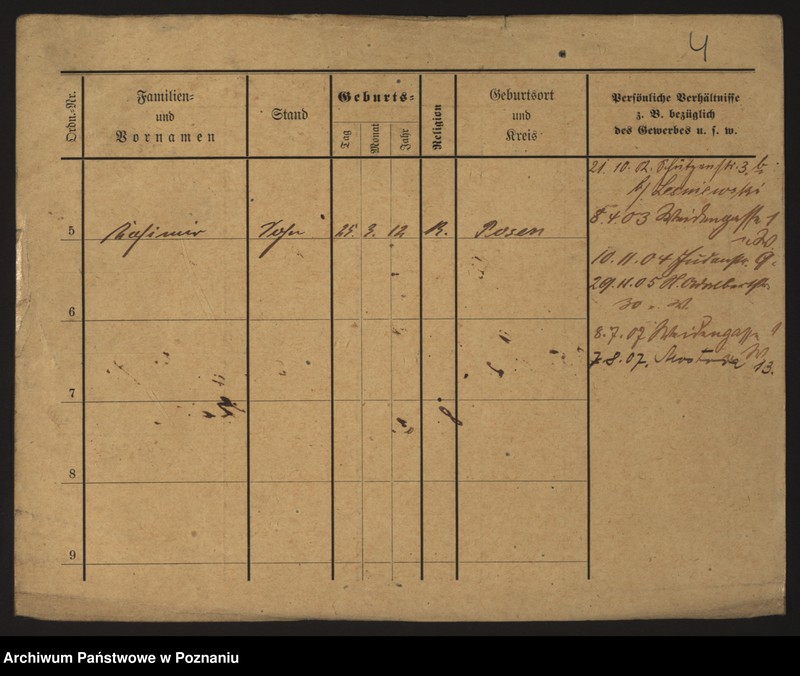 4
Ordn.-Nr.
Familien-
und
Vornamen
Stand
Geburts-
Tag
Monat
Jahr
Religion
Geburtsort
und
Kreis
Persönliche Verhältnisse
z. B. bezüglich
des Gewerbes u. s. w.
21. 10. Schützenstr. 3,
b/ Lesniewski
5 Kasimir Sohn 25. 3. 12 K. Posen
8.4.03 Weidengasse 1
10.11.04 Judenstr. 9.
29.11.05 St. Adalbertstr.
30
8.7.07 Weidengasse 1
7.8.07. 13.
6
7
8
9
Archiwum Państwowe w Poznaniu